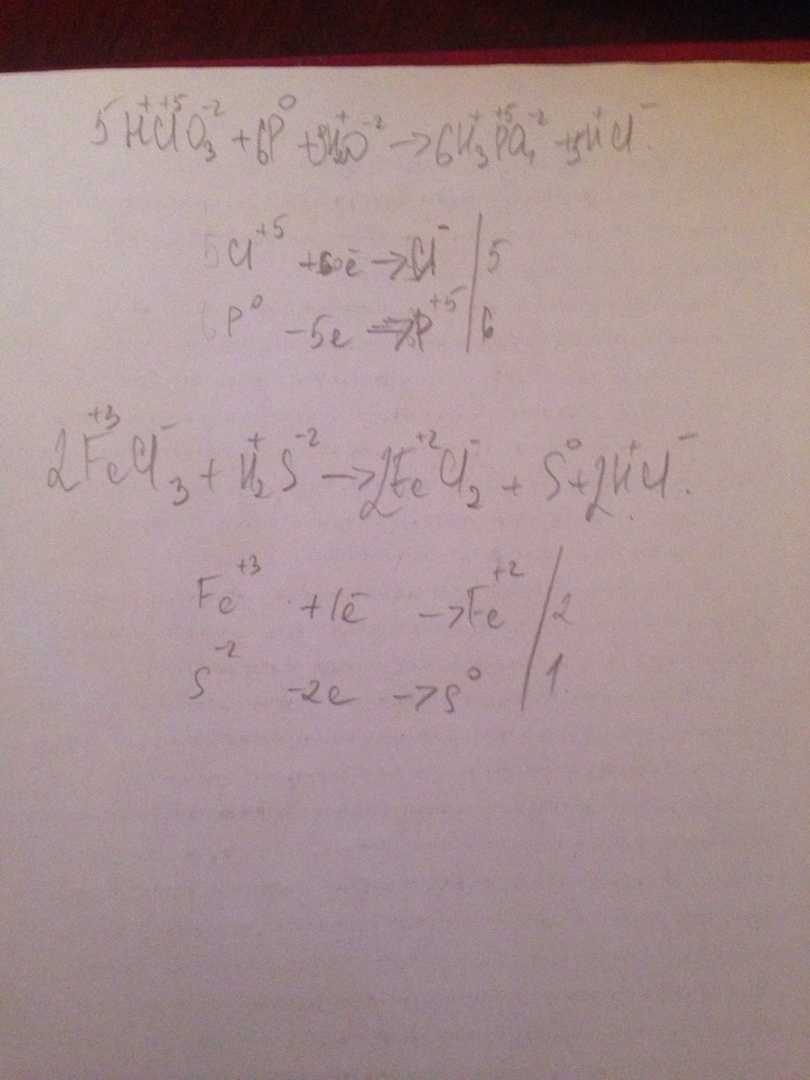 5H⁺Cl⁺⁵O₃⁻² + 6P⁰ + 9H₂⁺O⁻² → 6H₃⁺P⁺⁵O₄⁻² + 5H⁺Cl⁻.
5Cl⁺⁵ + 6ē → Cl⁻ | 5
6P⁰ - 5e → P⁺⁵ | 6
2Fe⁺³Cl₃⁻ + H₂⁺S⁻² → 2Fe⁺²Cl₂⁻ + S⁰ + 2H⁺Cl⁻.
Fe⁺³ + 1ē → Fe⁺² | 2
S⁻² - 2e → S⁰ | 1.